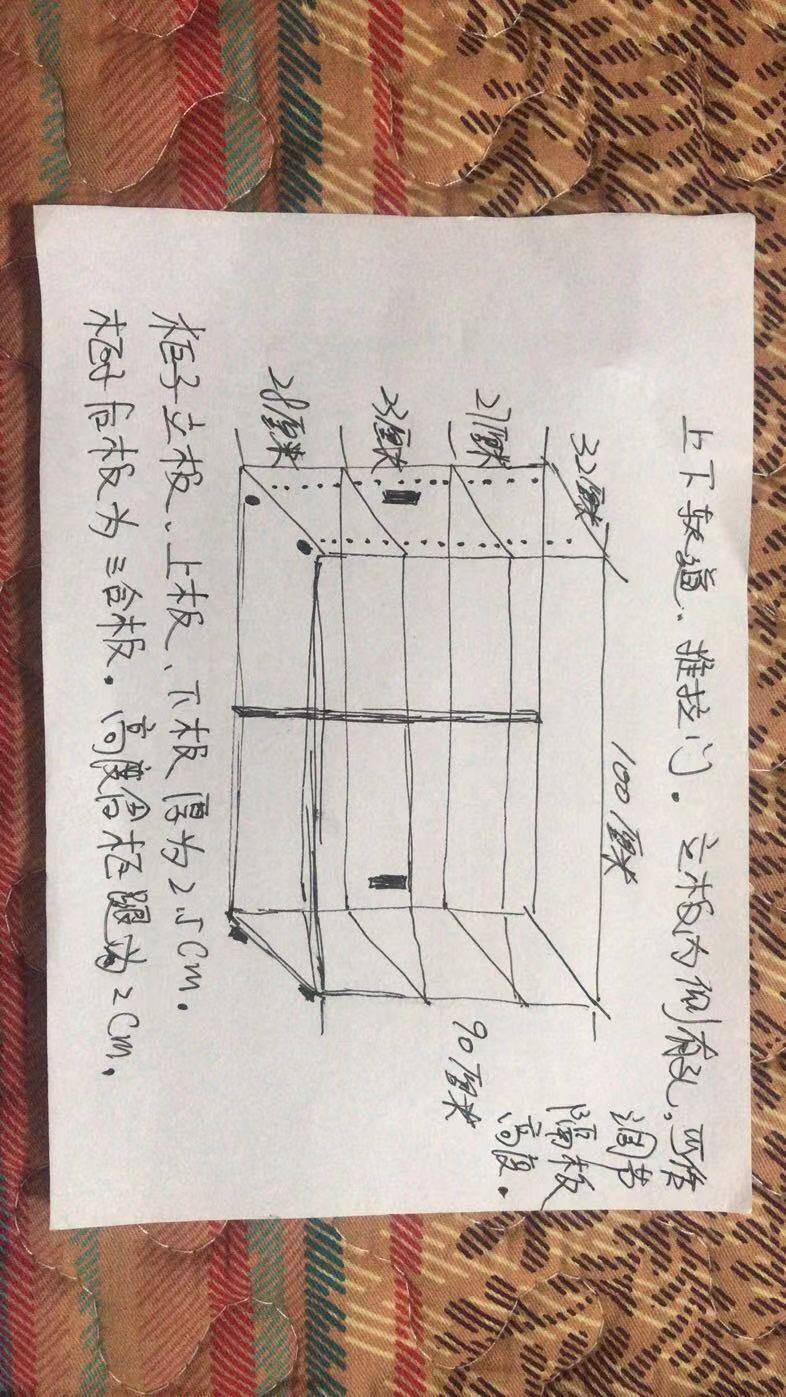 上下轨道、推拉门。立板内侧有孔,可倍
调节
隔板
高度。
100厘米
32厘米
27厘米
23厘米
28厘米
90厘米
柜子立板、上板、下板厚为2.5cm.
柜子后板为三合板。高度含柜腿为2cm.